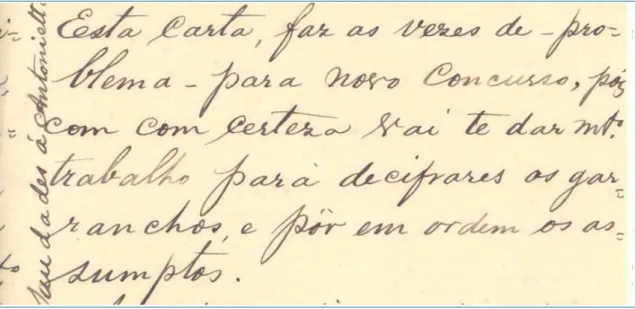 Esta Carta, faz as vezes de - pro=
blema - para novo Concurso, pois
com com certeza vai te dar mto.
trabalho para decifrares os gar=
ranchos, e pôr em ordem os as=
sumptos.
saudades á Antoniett